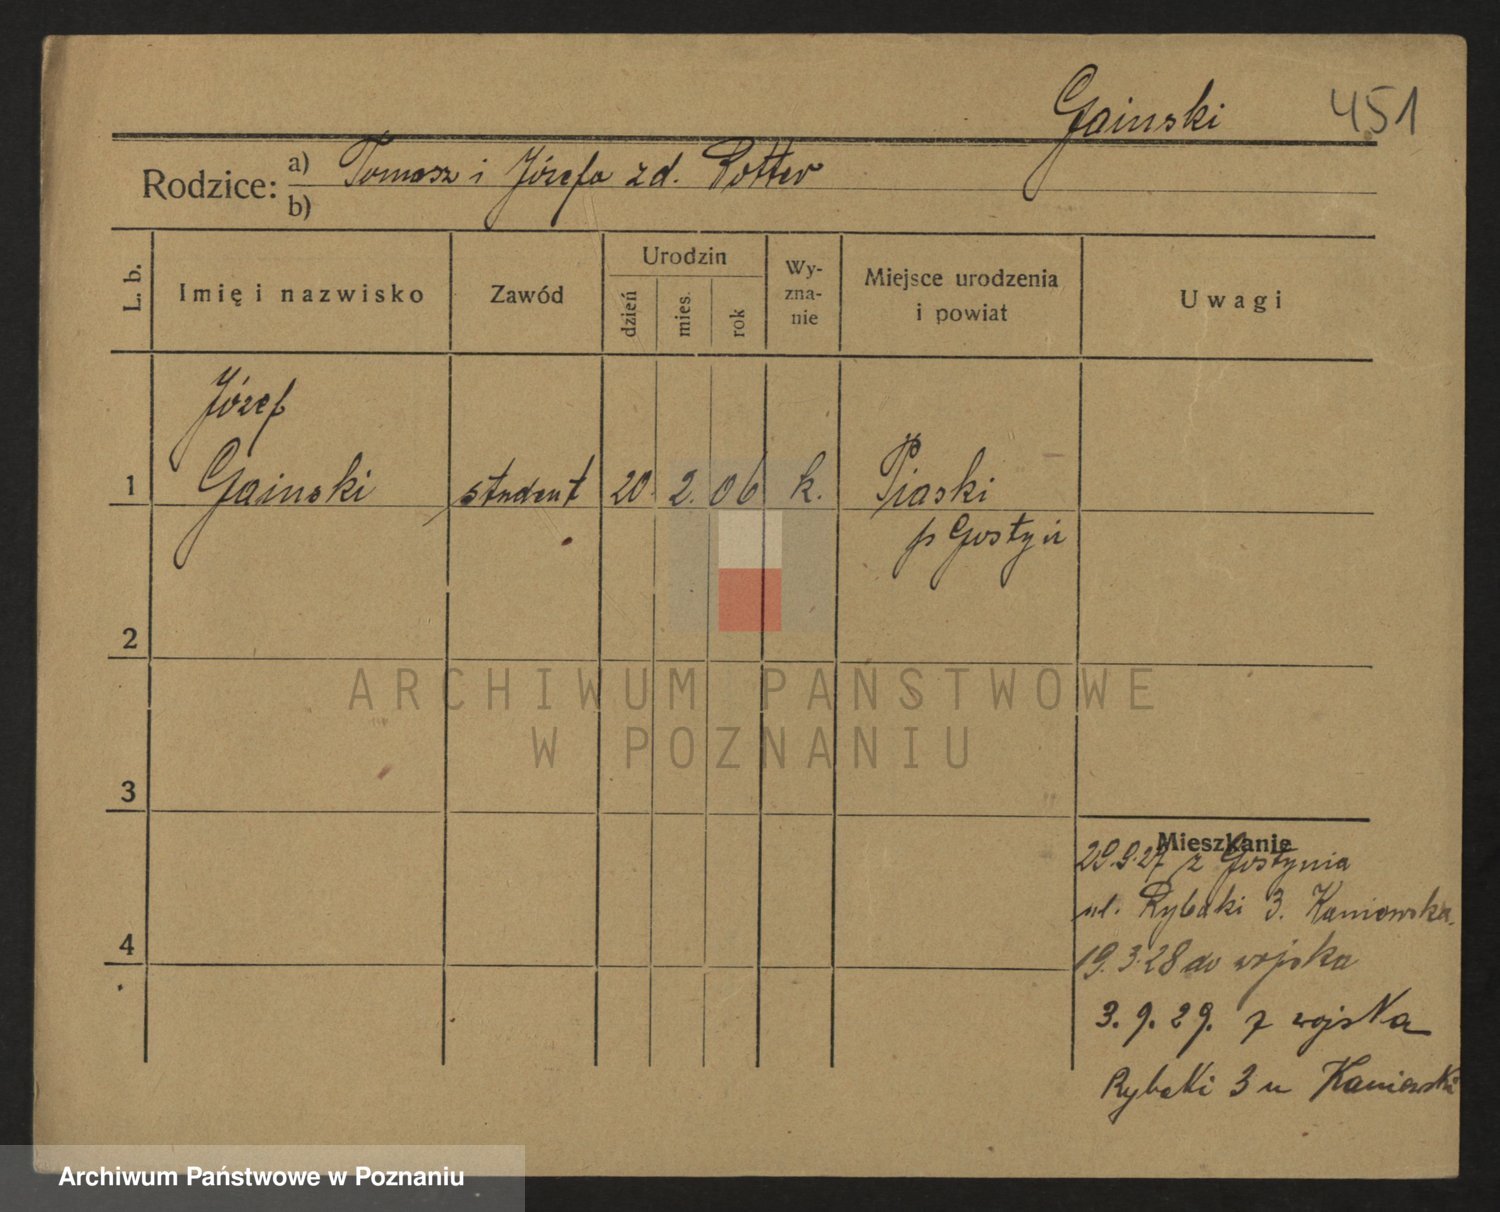 Gainski 451
Rodzice: a) Tomasz i Józefa zd. Rotter
b)
L. b.
Imię i nazwisko
Zawód
Urodzin
dzień
mies.
rok
Wy-
zna-
nie
Miejsce urodzenia
i powiat
Uwagi
Józef
1 Gainski student 20. 2. 06 k. Piaski
p Gostyń
2
3
4
ARCHIWUM PAŃSTWOWE
W POZNANIU
Mieszkanie
29.9.27 z Gostynia
ul. Rybaki 3. Kaniewska.
19.3.28 do wojska
3.9.29. z wojska
Rybaki 3 u Kaniewski
Archiwum Państwowe w Poznaniu